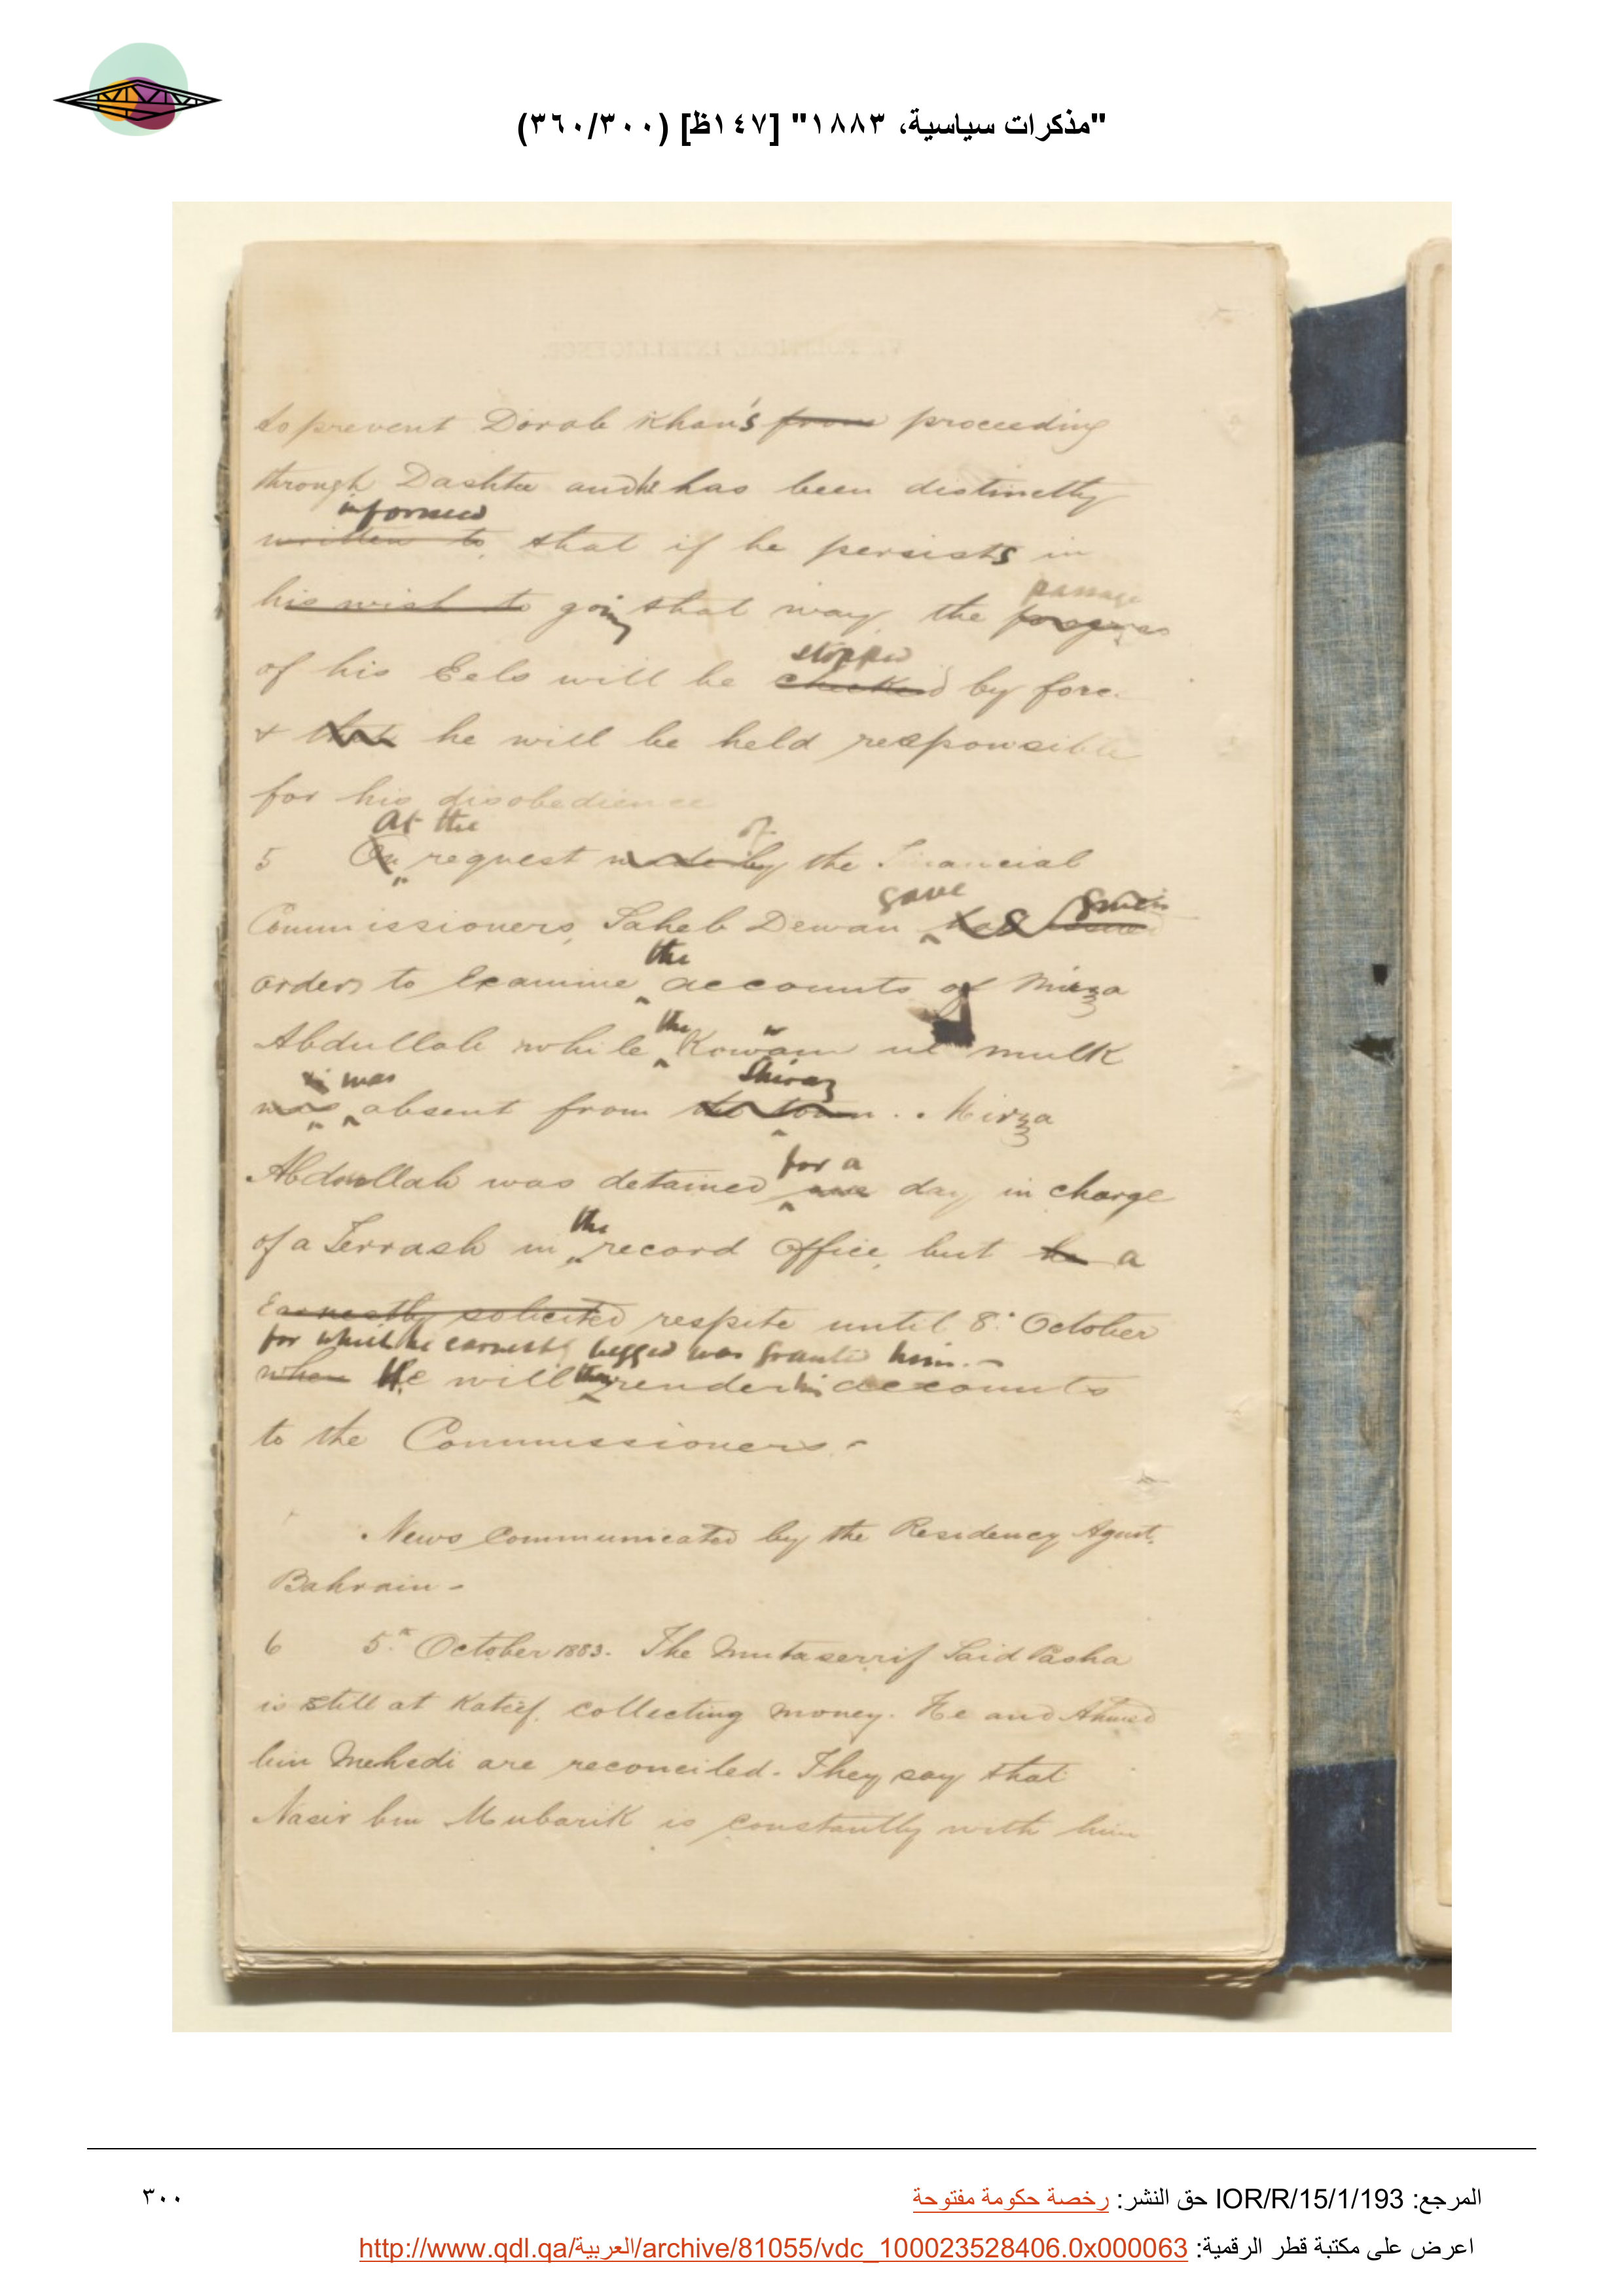 "مذكرات سياسية، ١٨٨٣" [١٤٧ظ] (٣٦٠/٣٠٠)
to prevent Dorab Khan's from proceeding
through Dashtee and he has been distinctly
informed
written to that if he persists in
passage
his wish to going that way, the progress
stopped
of his Eels will be checked by force
& that he will be held responsible
for his disobedience
At the of
5 On request made by the Financial
gave given
Commissioners, Saheb Dewan has issued
the
orders to examine accounts of Mirza
the
Abdullah while Kowam ul mulk
was Shiraz
was absent from the town. Mirza
for a
Abdullah was detained one day in charge
the
of a Ferrash in record office, but he a
earnestly solicited respite until 8. October
for which he earnestly begged was granted him.-
when He will then render his accounts
to the Commissioners.-
News communicated by the Residency Agent,
Bahrain-
6 5th October 1883. The Mutaserrif Said Pasha
is still at Katif, collecting money. He and Ahmed
bin Mehedi are reconciled. They say that
Nasir bin Mubarik is constantly with him
المرجع: IOR/R/15/1/193 حق النشر: رخصة حكومة مفتوحة
٣٠٠
اعرض على مكتبة قطر الرقمية: http://www.qdl.qa/العربية/archive/81055/vdc_100023528406.0x000063